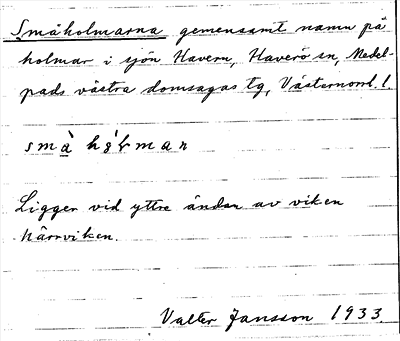 Småholmarna gemensamt namn på
holmar i sjön Havern, Haverö sn, Medel-
pads västra domsagas tg, Västernorrl. l.
små̀ hó̀lmar
Ligger vid yttre ändan av viken
Kärrviken.
Valter Jansson 1933